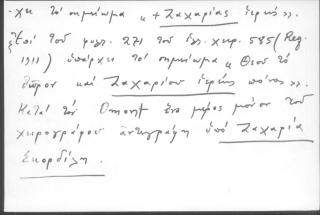 -χε τὸ σημείωμα « + Ζαχαρίας ἱερεύς ».
Ἐπὶ τοῦ φυλλ. 271 τοῦ ἑλ. χκρ. 585 (Reg.
1911) ὑπάρχει τὸ σημείωμα « Θεοῦ τὸ
δῶρον καὶ Ζαχαρίου ἱερέως πόνος ».
Κατὰ τὸν Omont ἕνα μέρος μόνον τοῦ
χειρογράφου ἀντεγράφη ὑπὸ Ζαχαρία
Σκορδίλη.